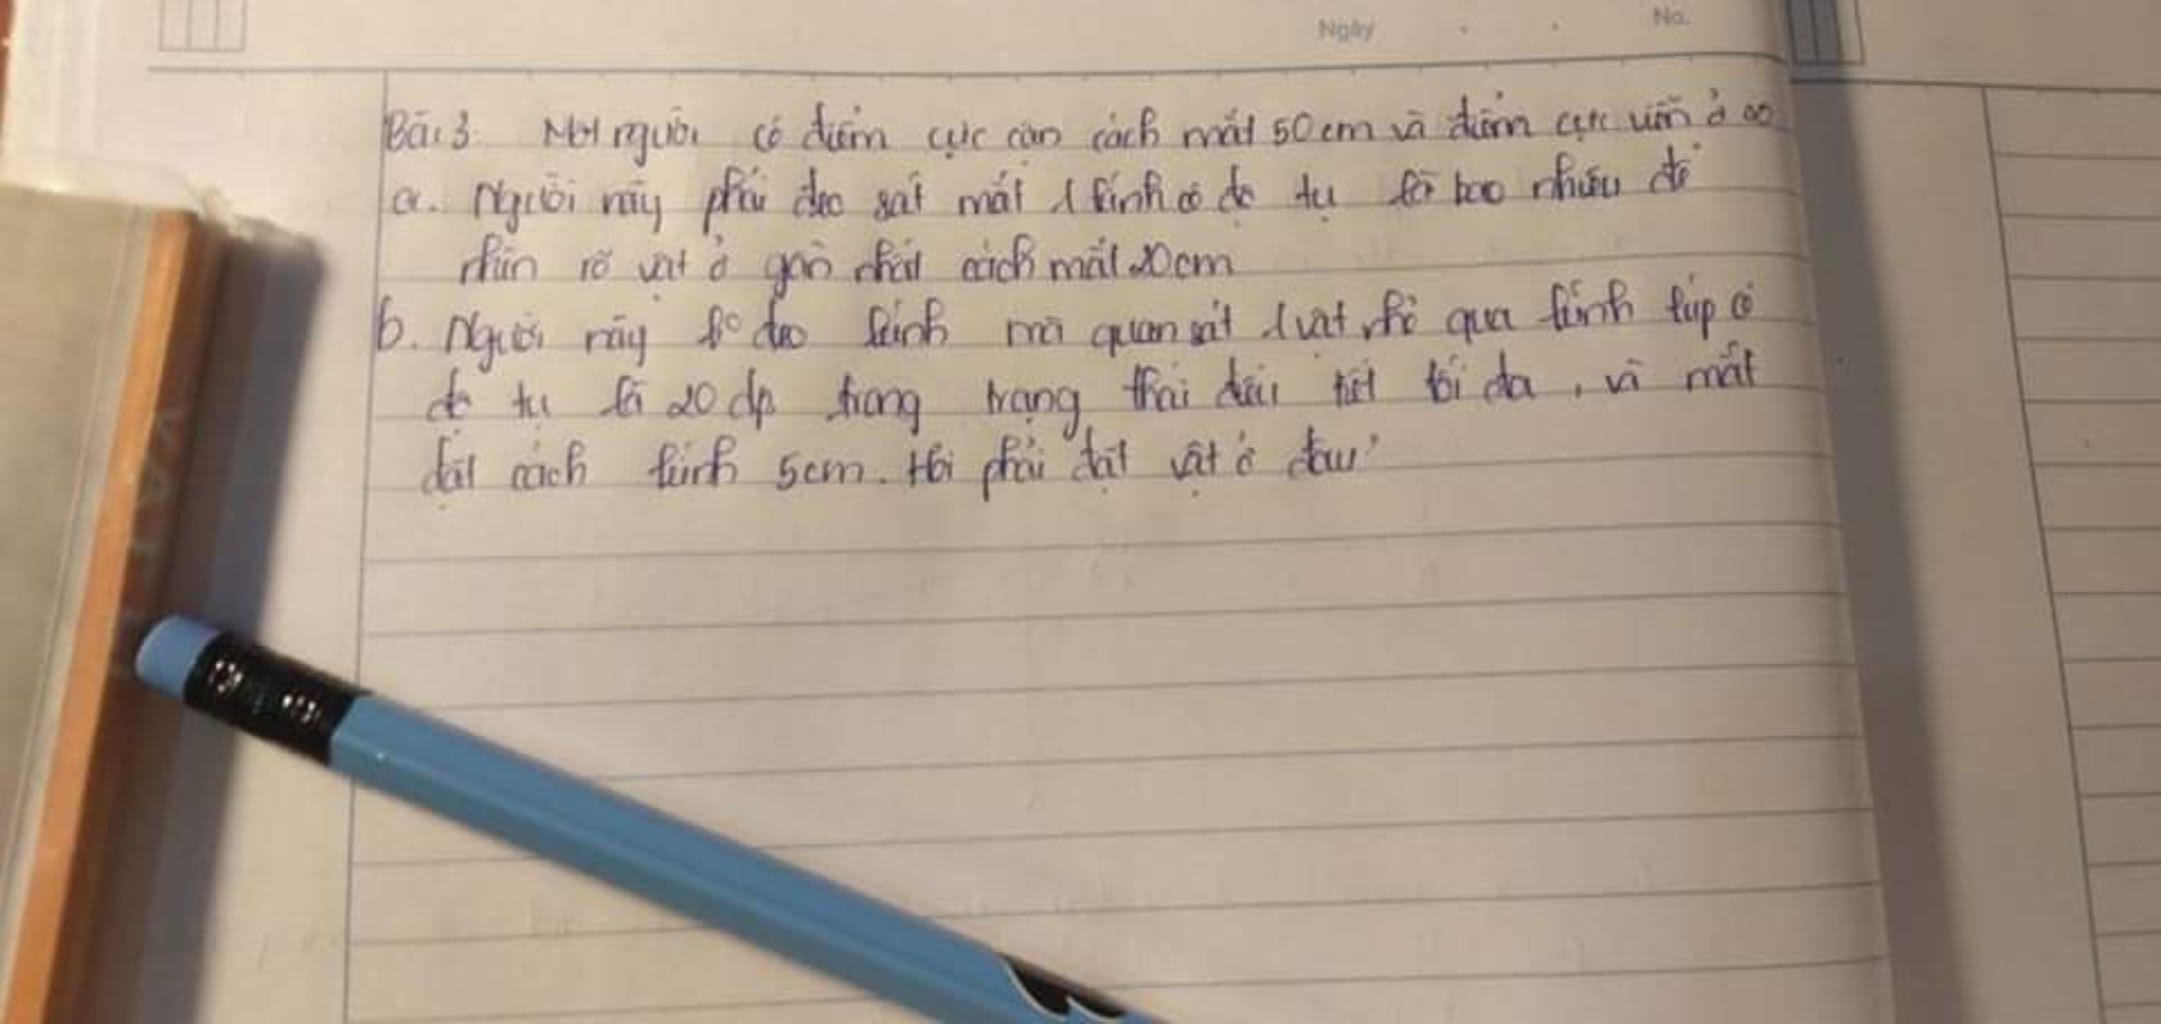 Ngày No.
Bài 3 Một người có điểm cực cận cách mắt 50 cm và điểm cực viễn ở ∞
a. Người này phải đeo sát mắt 1 kính có độ tụ là bao nhiêu để
nhìn rõ vật ở gần nhất cách mắt 20cm
b. Người này ko đeo kính mà quan sát 1 vật nhỏ qua kính lúp có
độ tụ là 20 dp trong trạng thái điều tiết tối đa, vì mắt
đặt cách kính 5cm. Hỏi phải đặt vật ở đâu?